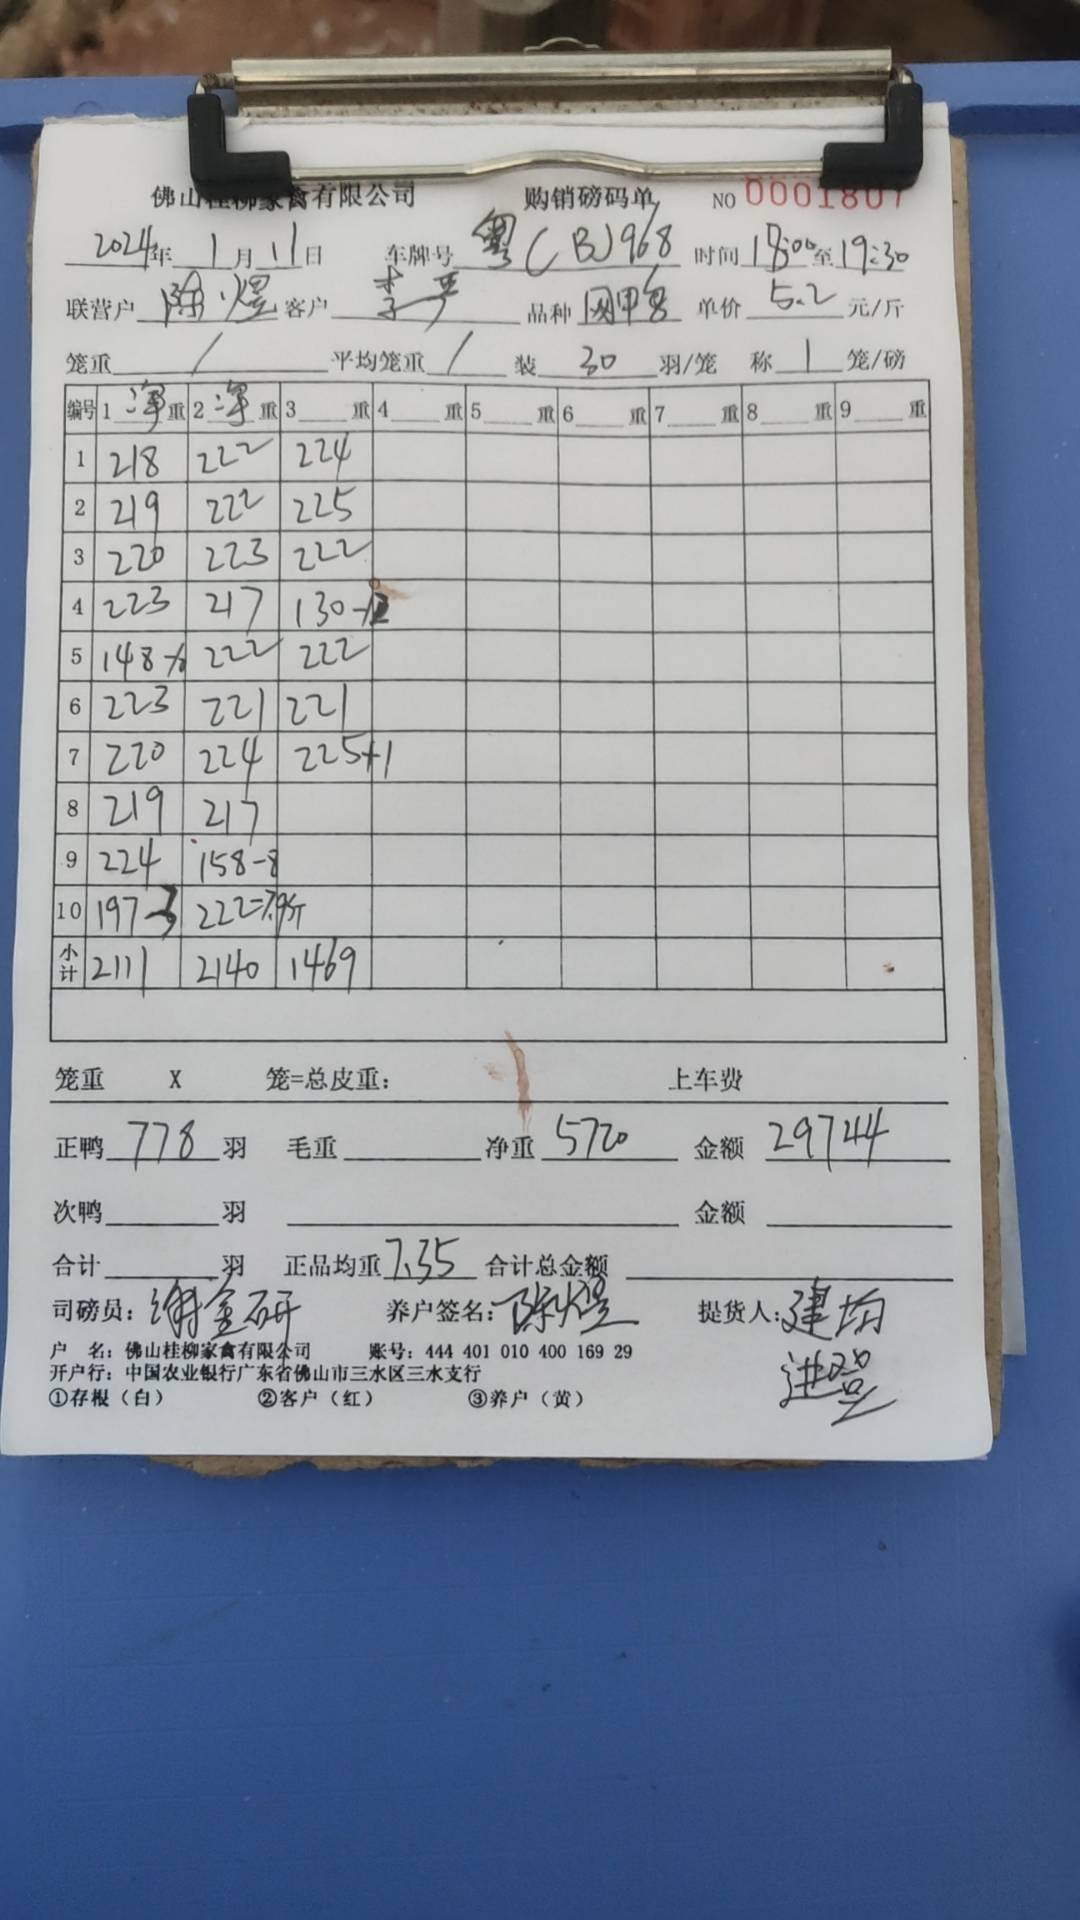 佛山桂柳家禽有限公司 购销磅码单 NO 0001807
2024年 1月 11日 车牌号 粤(B)968 时间 18:00 至 19:30
联营户 陈煜 客户 品种 单价 5.2 元/斤
笼重 / 平均笼重 / 装 30 羽/笼 称 1 笼/磅
编号 1 净 重 2 净 重 3 重 4 重 5 重 6 重 7 重 8 重 9 重
1 218 222 224
2 219 222 225
3 220 223 222
4 223 217 130
5 148 222 222
6 223 221 221
7 220 224 225+1
8 219 217
9 224 158-8
10 197-3 222=7.9斤
小计 2111 2140 1469
笼重 X 笼=总皮重: 上车费
正鸭 778 羽 毛重 净重 5720 金额 29744
次鸭 羽 金额
合计 羽 正品均重 7.35 合计总金额
司磅员: 谢金研 养户签名: 陈煜 提货人: 建均
户 名: 佛山桂柳家禽有限公司 账号: 444 401 010 400 169 29
开户行: 中国农业银行广东省佛山市三水区三水支行
①存根(白) ②客户(红) ③养户(黄)